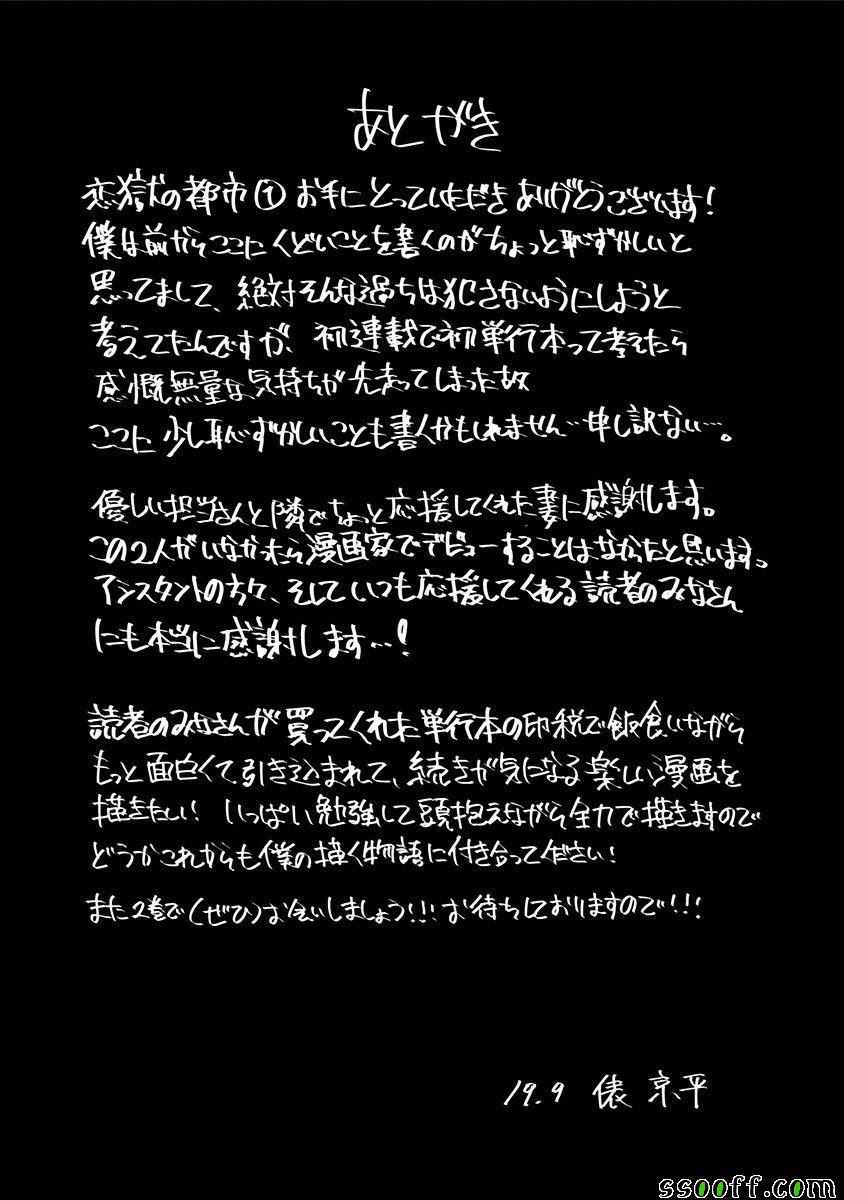 あとがき
恋獄の都市① お手にとっていただきありがとうございます!
僕は前からここにくどいことを書くのがちょっと恥ずかしいと
思ってまして、絶対そんな過ちは犯さないようにしようと
考えてたんですが、初連載で初単行本って考えたら
感慨無量な気持ちが先走ってしまった故
ここに少し恥ずかしいことも書くかもしれません…申し訳ない…。
優しい担当さんと隣でちょっと応援してくれた妻に感謝します。
この2人がいなかったら漫画家でデビューすることはなかったと思います。
アシスタントの方々、そしていつも応援してくれる読者のみなさん
にも本当に感謝します…!
読者のみなさんが買ってくれた単行本の印税で飯食いながら
もっと面白くて引き込まれて、続きが気になる楽しい漫画を
描きたい! いっぱい勉強して頭抱えながら全力で描きますので
どうかこれからも僕の描く物語に付き合ってください!
また2巻で(ぜひ)お会いしましょう!!! お待ちしておりますので!!!
19.9 俵 京平
ssooff.com